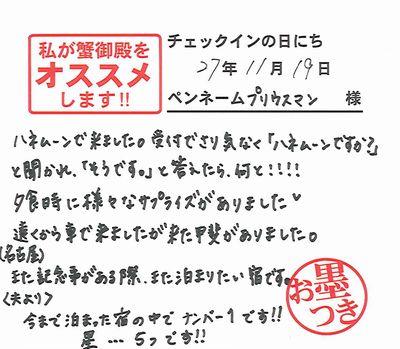 私が蟹御殿を
オススメ
します!!
チェックインの日にち
27年11月19日
ペンネームプリウスマン 様
ハネムーンで来ました。受付でさり気なく「ハネムーンですか?」
と聞かれ、「そうです。」と答えたら、何と!!!!
夕食時に様々なサプライズがありました♥
遠くから車で来ましたが来た甲斐がありました。
(名古屋)
また記念事がある際、また泊まりたい宿です。
<夫より>
今まで泊まった宿の中でナンバー1です!!
星…5つです!!
お墨つき